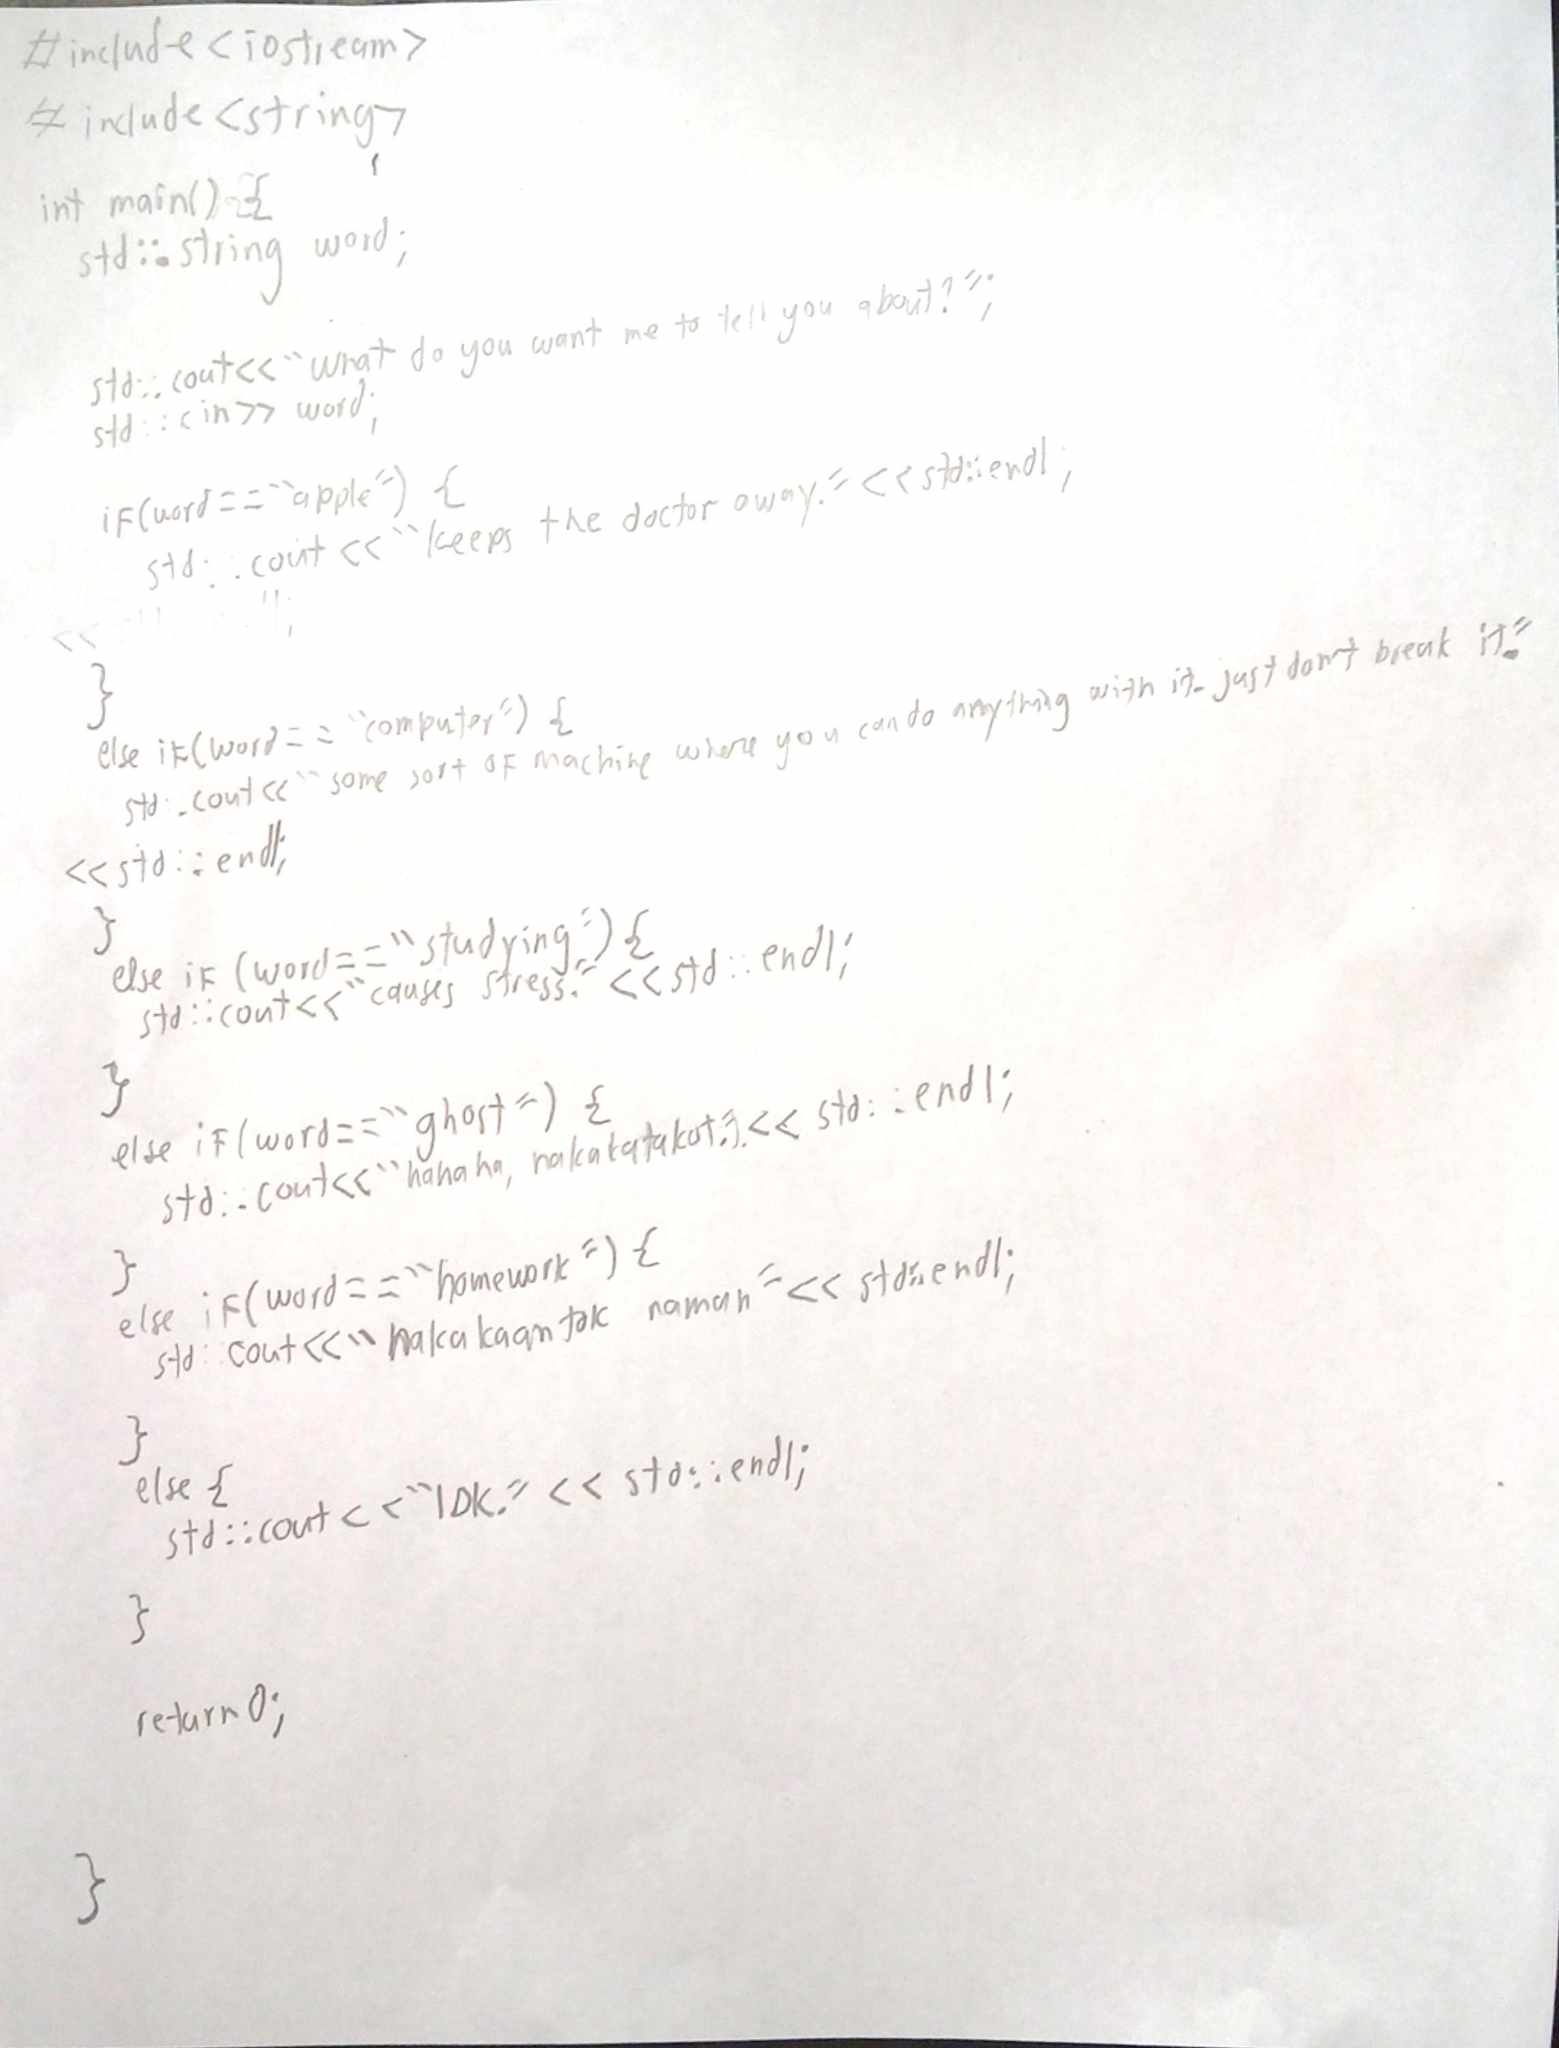 #include <iostream>
#include <string>
int main() {
std::string word;
std::cout<<"what do you want me to tell you about?";
std::cin>> word;
if(word=="apple") {
std::cout <<"keeps the doctor away."<<std::endl;
<<
}
else if(word=="computer") {
std::cout<<"some sort of machine where you can do anything with it. just don't break it."
<<std::endl;
}
else if (word=="studying") {
std::cout<<"causes stress."<<std::endl;
}
else if(word=="ghost") {
std::cout<<"hahaha, nakakatakot."<< std::endl;
}
else if(word=="homework") {
std: cout<<"nakakaantok naman"<< std::endl;
}
else {
std::cout<<"IDK."<< std::endl;
}
return 0;
}